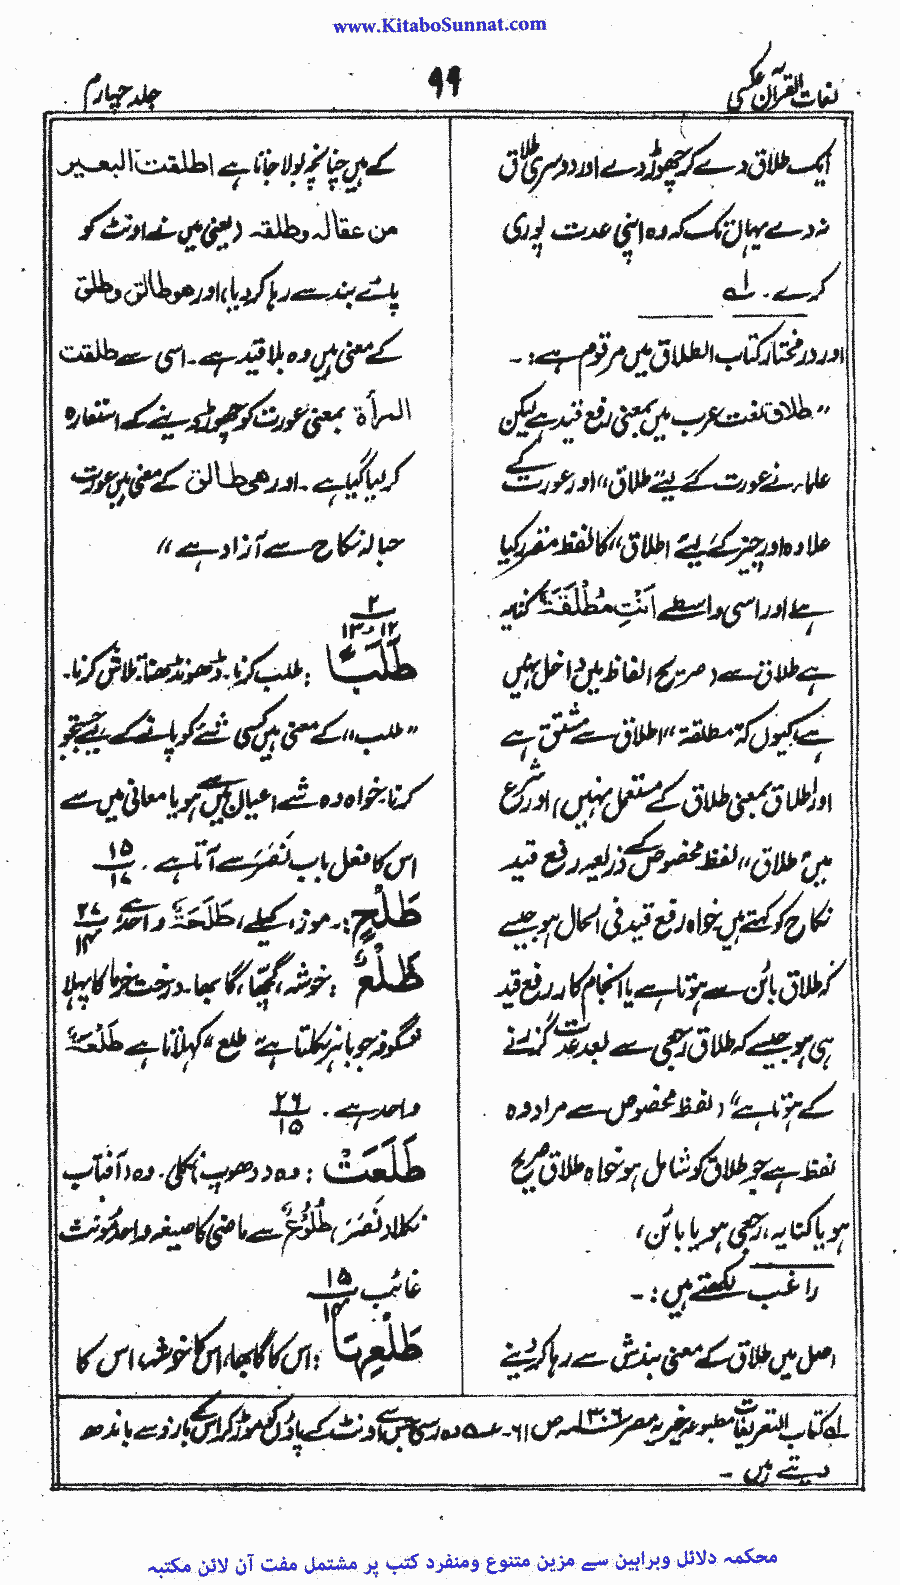 www.KitaboSunnat.com
لغات القرآن عکسی
۹۹
جلد چہارم
ایک طلاق دے کر چھوڑ دے اور دوسری طلاق
نہ دے یہاں تک کہ وہ اپنی عدت پوری
کرے۔ لہ
اور در مختار کتاب الطلاق میں مرقوم ہے :۔
"طلاق لغت عرب میں بمعنی رفع قید ہے لیکن
علماء نے عورت کے لیے طلاق" اور عورت کے
علاوہ اور چیز کے لیے اطلاق" کا لفظ مقرر کیا
ہے اور اسی واسطے اَنْتِ مُطْلَقَۃٌ کنایہ
ہے طلاق سے (صریح الفاظ میں داخل نہیں
ہے، کیوں کہ مطلقۃ "اطلاق سے مشتق ہے
اور اطلاق بمعنی طلاق کے مستعمل نہیں) اور شرع
میں "طلاق" لفظ مخصوص کے ذریعہ رفع قید
نکاح کو کہتے ہیں خواہ رفع قید فی الحال ہو جیسے
کہ طلاق بائن سے ہوتا ہے یا انجام کار رفع قید
ہی ہو جیسے کہ طلاق رجعی سے بعد عدت گزرنے
کے ہوتا ہے" (لفظ مخصوص سے مراد وہ
لفظ ہے جو طلاق کو شامل ہو خواہ طلاق صریح
ہو یا کنایہ، رجعی ہو یا بائن،
راغب لکھتے ہیں :۔
اصل میں طلاق کے معنی بندش سے رہا کر دینے
کے ہیں چنانچہ بولا جاتا ہے اطلقت البعیر
من عقالہ وطلقہ (یعنی میں نے اونٹ کو
پائے بند سے رہا کر دیا) اور ھو طالق وطلق
کے معنی ہیں وہ بلا قید ہے۔ اسی سے طلقت
المرأۃ بمعنی عورت کو چھوڑ دینے کے استعارہ
کر لیا گیا ہے۔ اور ھی طالق کے معنی ہیں عورت
حبالہ نکاح سے آزاد ہے"
۲
۱۲ و ۱۳
طَلَبًا : طلب کرنا۔ ڈھونڈھنا۔ تلاش کرنا۔
"طلب" کے معنی ہیں کسی شئے کو پانے کے لیے جستجو
کرنا۔ خواہ وہ شے اعیان میں سے ہو یا معانی میں سے
اس کا فعل باب نَصَرَ سے آتا ہے۔ ۱۵/۱۷
طَلْحٍ :۔ موز، کیلے، طَلْحَۃٌ واحد ہے ۲۷/۱۴
طَلْعٌ : خوشہ، گچھا، گابھا۔ درخت خرما کا پہلا
شگوفہ جو باہر نکلتا ہے "طلع" کہلاتا ہے طَلْعَۃٌ
واحد ہے۔ ۲۶/۱۵
طَلَعَتْ : وہ (دھوپ) نکلی۔ وہ (آفتاب
نکلا (نَصَرَ) طُلُوْعٌ سے ماضی کا صیغہ واحد مؤنث
غائب ۱۵/۱۴
طَلْعِهَا : اس کا گابھا، اس کا خوشہ، اس کا
لہ کتاب التعریفات مطبوعہ خیریہ مصر ۱۳۰۶ھ ص ۶۱۔ وہ رسی جس سے اونٹ کے پاؤں کو موڑ کر اس کے بازو سے باندھ
دیتے ہیں۔
محکمہ دلائل وبراہین سے مزین متنوع ومنفرد کتب پر مشتمل مفت آن لائن مکتبہ